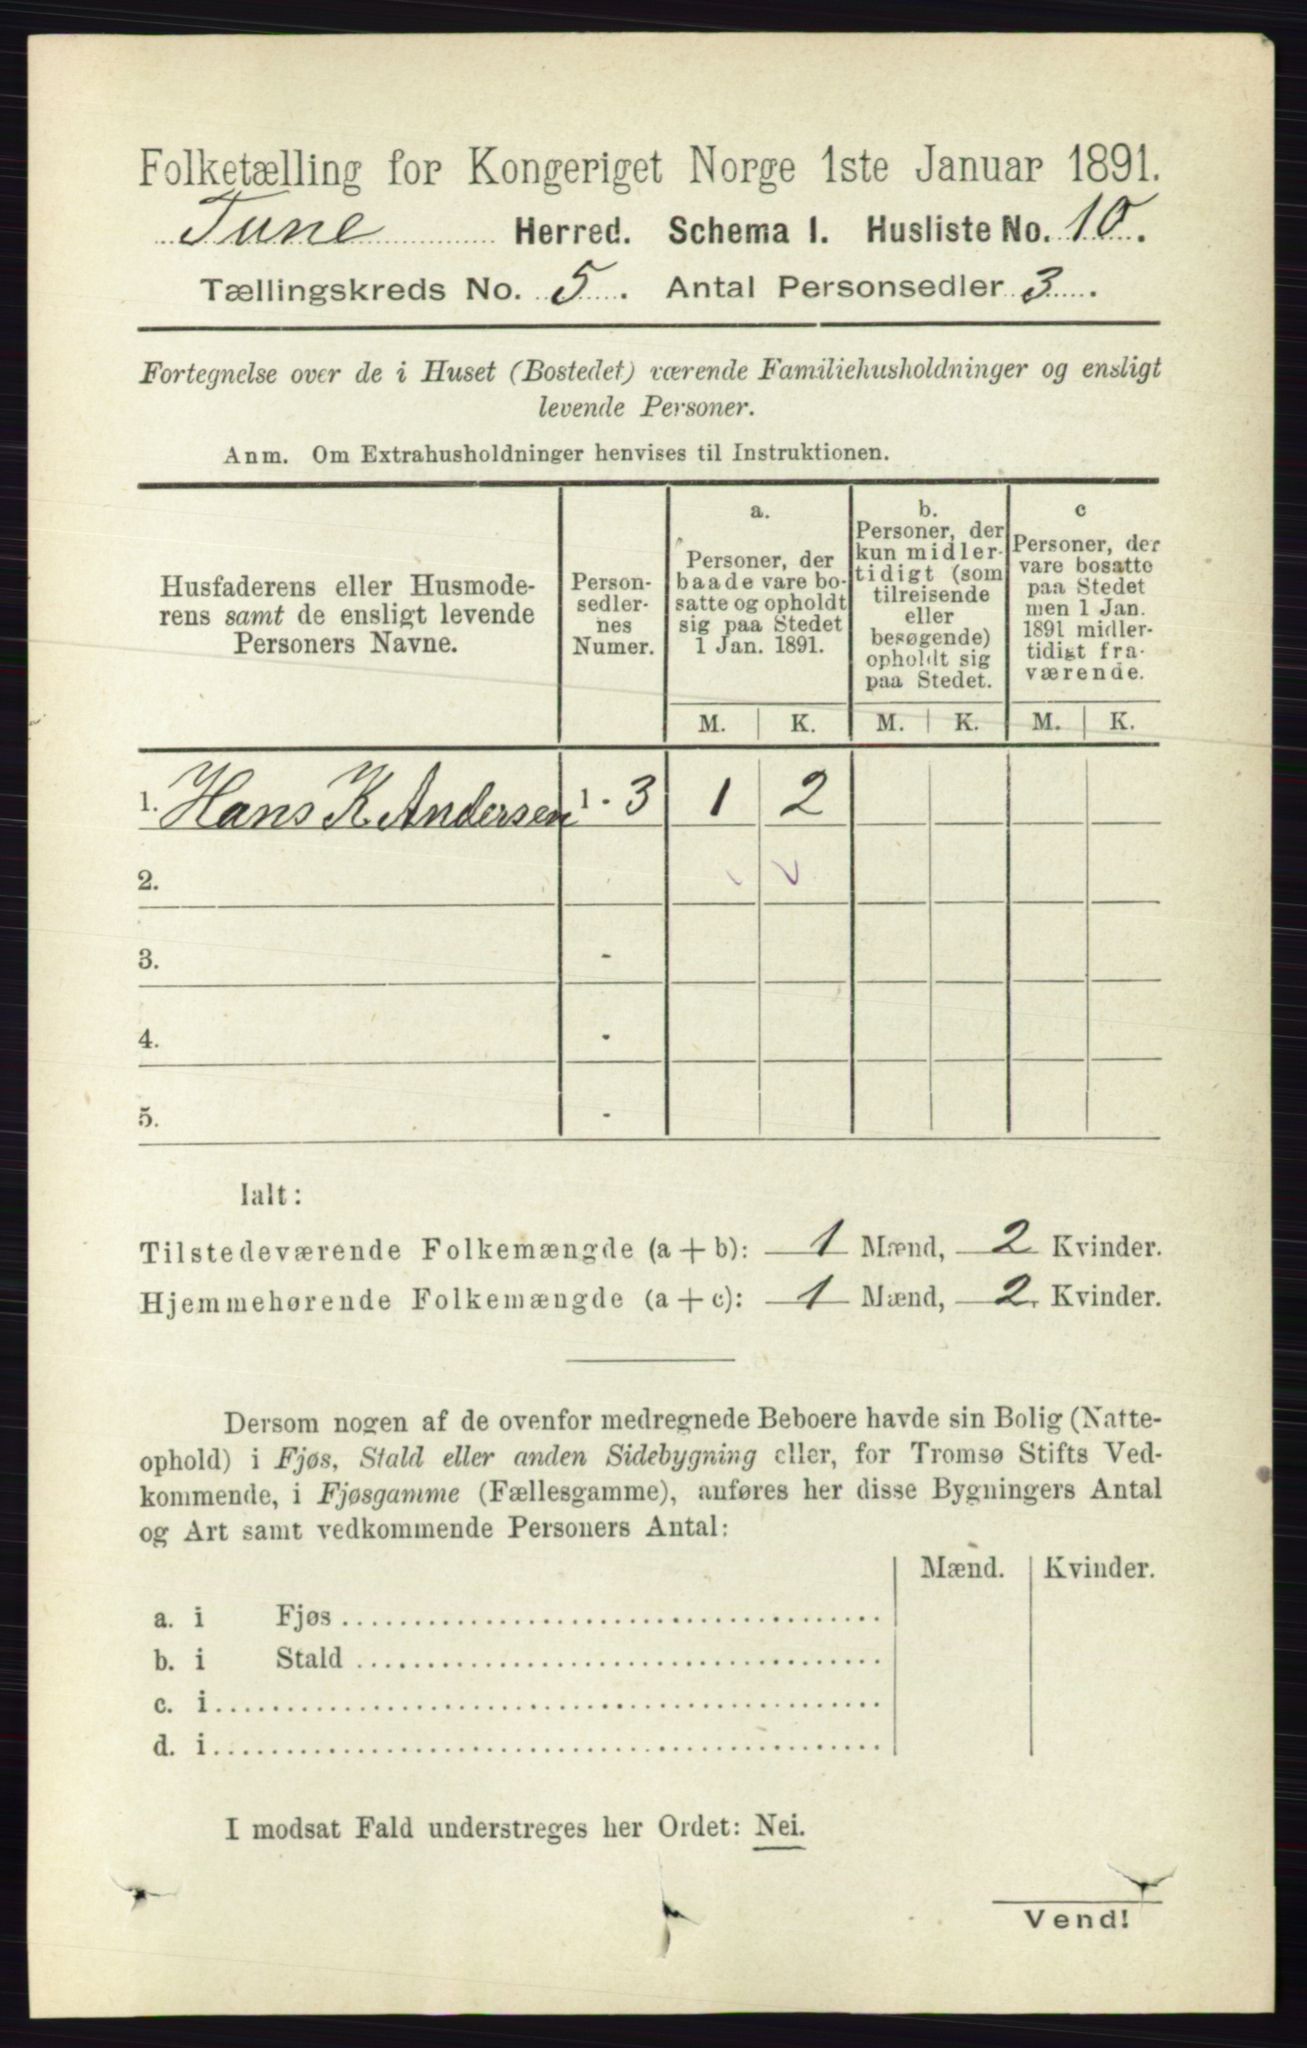 Folketælling for Kongeriget Norge 1ste Januar 1891.
Tune Herred. Schema I. Husliste No. 10.
Tællingskreds No. 5. Antal Personsedler 3.
Fortegnelse over de i Huset (Bostedet) værende Familiehusholdninger og ensligt
levende Personer.
Anm. Om Extrahusholdninger henvises til Instruktionen.
Husfaderens eller Husmode-
rens samt de ensligt levende
Personers Navne.
Person-
sedler-
nes
Numer.
a.
Personer, der
baade vare bo-
satte og opholdt
sig paa Stedet
1 Jan. 1891.
b.
Personer, der
kun midler-
tidigt (som
tilreisende
eller
besøgende)
opholdt sig
paa Stedet.
c
Personer, der
vare bosatte
paa Stedet
men 1 Jan.
1891 midler-
tidigt fra-
værende.
M. K. M. K. M. K.
1. Hans K. Andersen 1 - 3 1 2
2.
3. -
4. -
5. -
Ialt:
Tilstedeværende Folkemængde (a + b): 1 Mænd, 2 Kvinder.
Hjemmehørende Folkemængde (a + c): 1 Mænd, 2 Kvinder.
Dersom nogen af de ovenfor medregnede Beboere havde sin Bolig (Natte-
ophold) i Fjøs, Stald eller anden Sidebygning eller, for Tromsø Stifts Ved-
kommende, i Fjøsgamme (Fællesgamme), anføres her disse Bygningers Antal
og Art samt vedkommende Personers Antal:
Mænd. Kvinder.
a. i Fjøs
b. i Stald
c. i
d. i
I modsat Fald understreges her Ordet: Nei.
Vend!